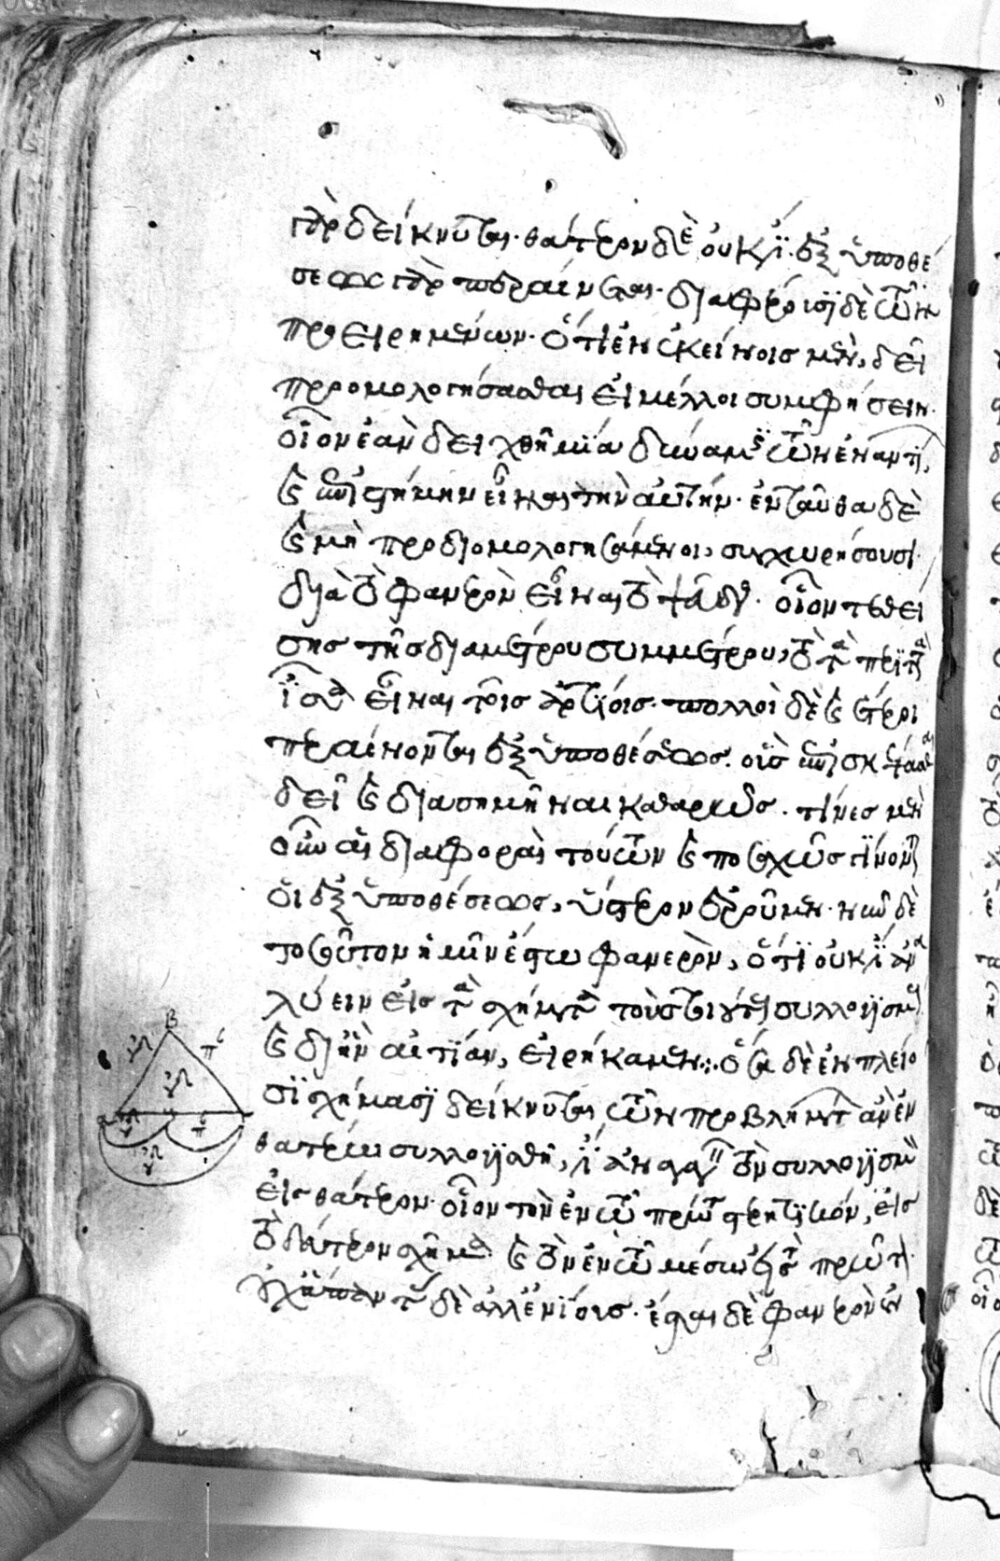 γὰρ δείκνυται· θάτερον δὲ οὐκέτι· ἐξ ὑποθέ
σεως γὰρ περαίνεται· διαφέρουσι δὲ τῶν
προειρημένων· ὅτι ἐν ἐκείνοις μὲν, δεῖ
προομολογήσασθαι εἰ μέλλοι συμφήσειν·
οἷον ἐὰν δειχθῆ μία δύναμις τῶν ἐναντί,
καὶ ἐπιστήμην εἶναι τὴν αὐτήν· ἐνταῦθα δὲ
καὶ μὴ προδιομολογησάμενοι, συγχωρήσουσι·
διὰ τὸ φανερὸν εἶναι τὸ ψεῦδος· οἷον τεθεί
σης τῆς διαμέτρου συμμέτρου, τὸ τὰ περιττὰ
ἴσα εἶναι τοῖς ἀρτίοις· πολλοὶ δὲ καὶ ἕτεροι
περαίνονται ἐξ ὑποθέσεως· οὓς ἐπισκέψασθαι
δεῖ καὶ διασημῆναι καθαρῶς· τίνες μὲν
οὖν αἱ διαφοραὶ τούτων καὶ ποσαχῶς γίνονται
οἱ ἐξ ὑποθέσεως, ὕστερον ἐροῦμεν· νῦν δὲ
τοσοῦτον ἡμῖν ἔστω φανερὸν, ὅτι οὐκ ἔστιν ἀνα
λύειν εἰς τὰ σχήματα τοὺς τοιούτους συλλογισμοὺς
καὶ δι' ἣν αἰτίαν, εἰρήκαμεν: ὅσα δὲ ἐν πλείο
σι σχήμασι δείκνυται τῶν προβλημάτων ἂν ἐν
θατέρω συλλογισθῆ, ἔστιν ἀναγαγεῖν τὸν συλλογισμὸν
εἰς θάτερον· οἷον τὸν ἐν τῶ πρώτω στερητικόν, εἰς
τὸ δεύτερον σχῆμα καὶ τὸν ἐν τῶ μέσω εἰς τὸ πρῶτον
οὐχ ἅπαντας δὲ ἀλλ' ἐνίους· ἔσται δὲ φανερὸν ἐν
Β